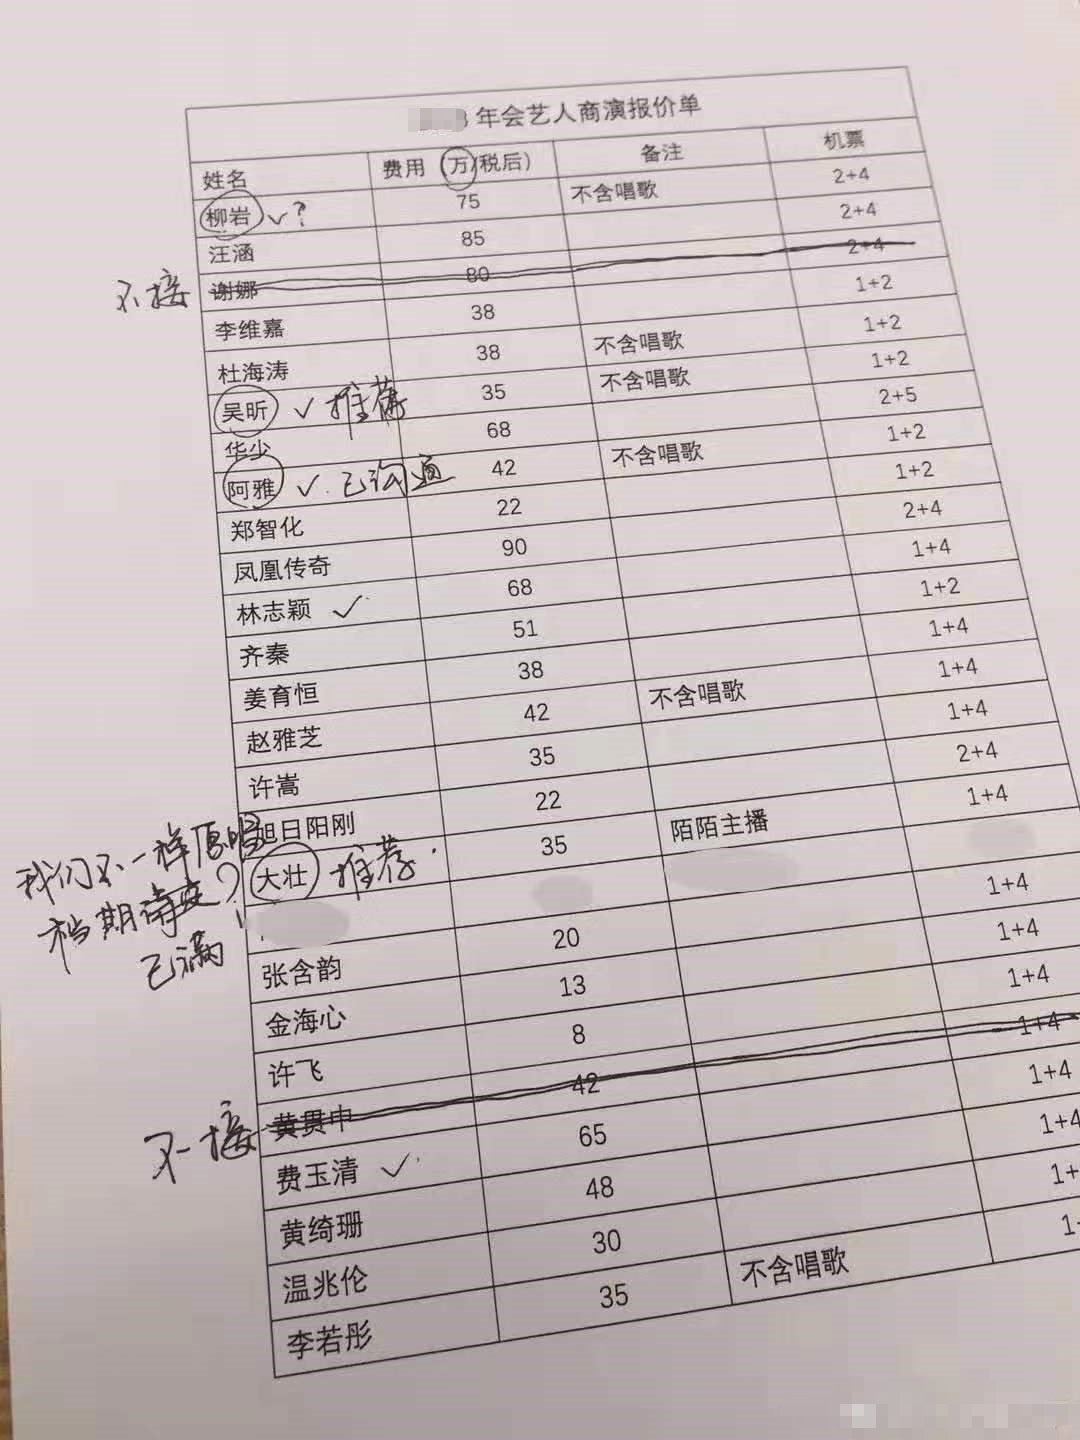 年会艺人商演报价单
姓名 费用 万(税后) 备注 机票
柳岩 ✓? 75 不含唱歌 2+4
汪涵 85 2+4
不接 谢娜 80 2+4
李维嘉 38 1+2
杜海涛 38 不含唱歌 1+2
吴昕 ✓ 推荐 35 不含唱歌 1+2
华少 68 2+5
阿雅 ✓. 已沟通 42 不含唱歌 1+2
郑智化 22 1+2
凤凰传奇 90 2+4
林志颖 ✓ 68 1+4
齐秦 51 1+2
姜育恒 38 1+4
赵雅芝 42 不含唱歌 1+4
许嵩 35 1+4
旭日阳刚 22 2+4
我们不一样原唱
大壮 推荐. 35 陌陌主播 1+4
档期待定?
已满!
张含韵 20 1+4
金海心 13 1+4
许飞 8 1+4
不接 黄贯中 42 1+4
费玉清 ✓. 65 1+4
黄绮珊 48 1+4
温兆伦 30 1+
李若彤 35 不含唱歌 1+